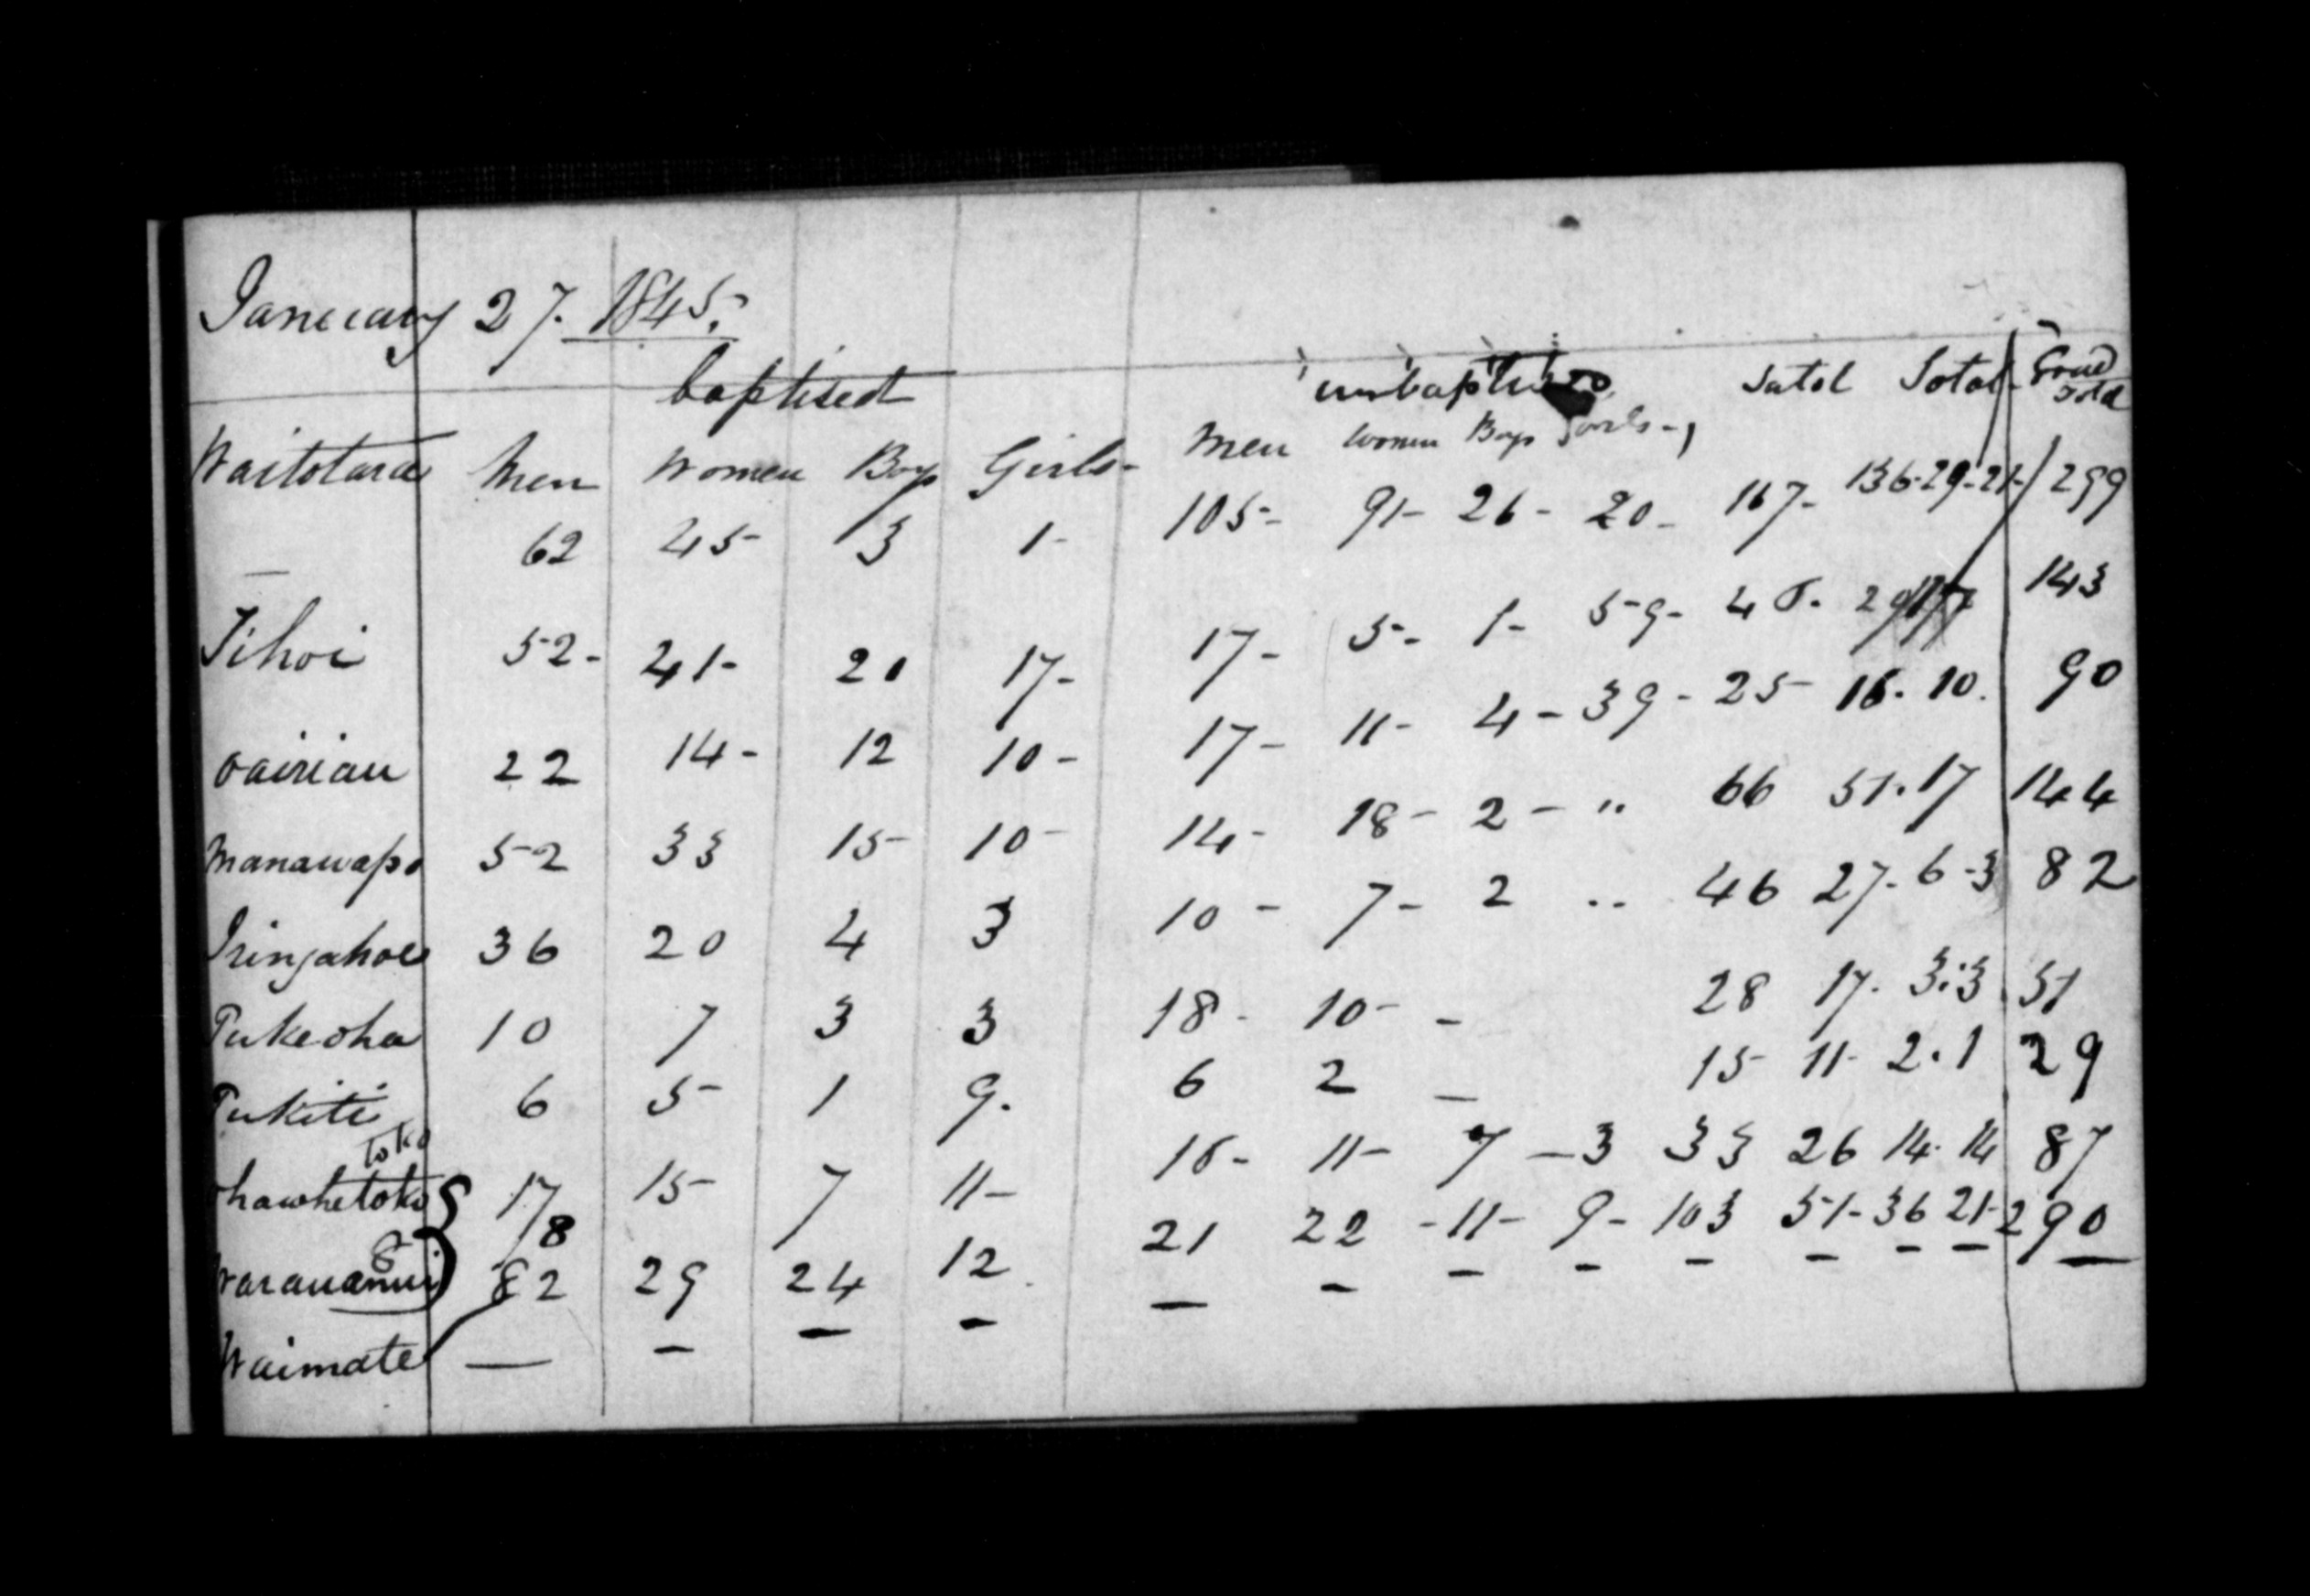 January 27. 1845.
baptised unbaptised Total Total Grand Total
Waitotara Men Women Boys Girls- Men Women Boys Girls-
62 45- 3 1- 105- 91- 26- 20- 167- 136-29-21- 299
Tihoi 52- 41- 20 17- 17- 5- 1- 59- 46. 143
oairiau 22 14- 12 10- 17- 11- 4- 39- 25- 16. 10. 90
Manawapo 52 33 15- 10- 14- 18- 2- " 66 51. 17 144
Iringahoe 36 20 4 3 10- 7- 2 .. 46 27. 6-3 82
Pukeoha 10 7 3 3 18- 10- - 28 17. 3.3 51
Pukiti 6 5- 1 9. 6 2 - 15- 11- 2.1 29
toko
hawhetoko 17/8 15- 7 11- 16- 11- 7 -3 33 26 14. 14 87
Warauanui 82 29 24 12 21 22 -11- 9- 103 51-36 21- 290
Waimate — - - - - - - - - - - - -